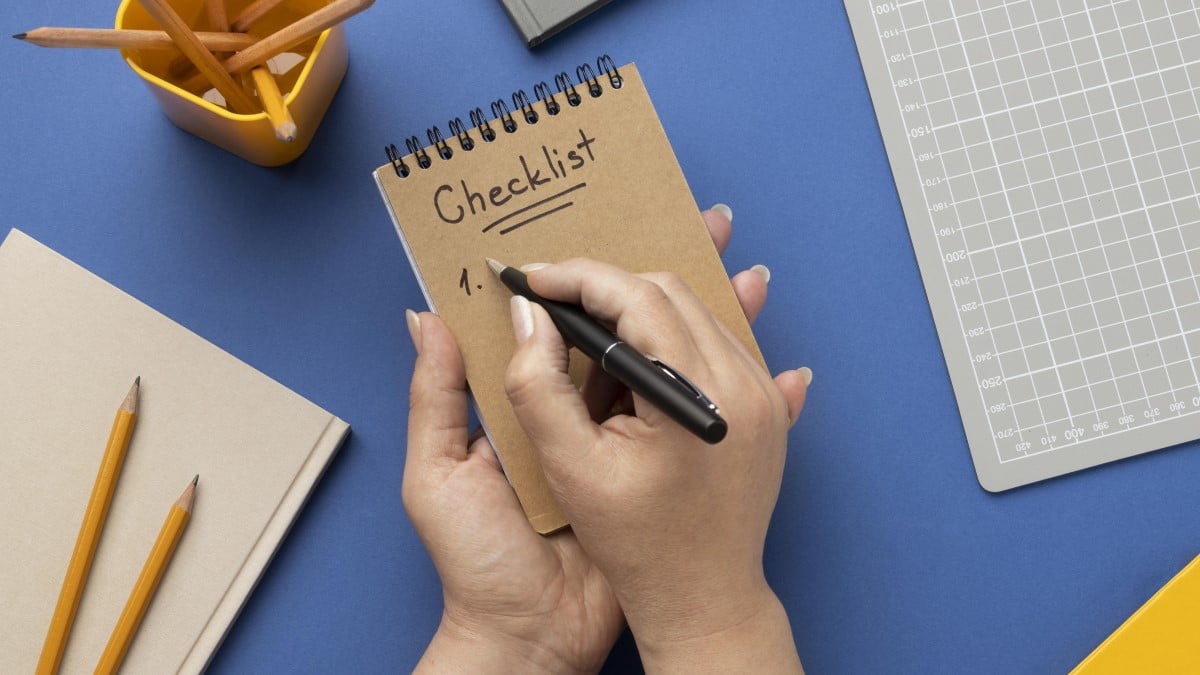 Checklist
1.
100
110
120
130
140
150
160
170
180
190
200
210
220
230
240
250
260
270
420
410
400
390
380
370
360